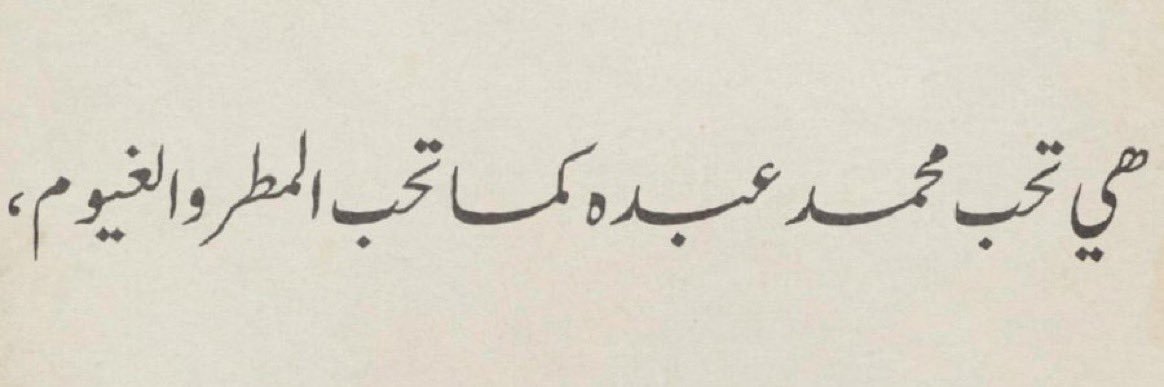 هي تحب محمد عبده كما تحب المطر والغيوم،